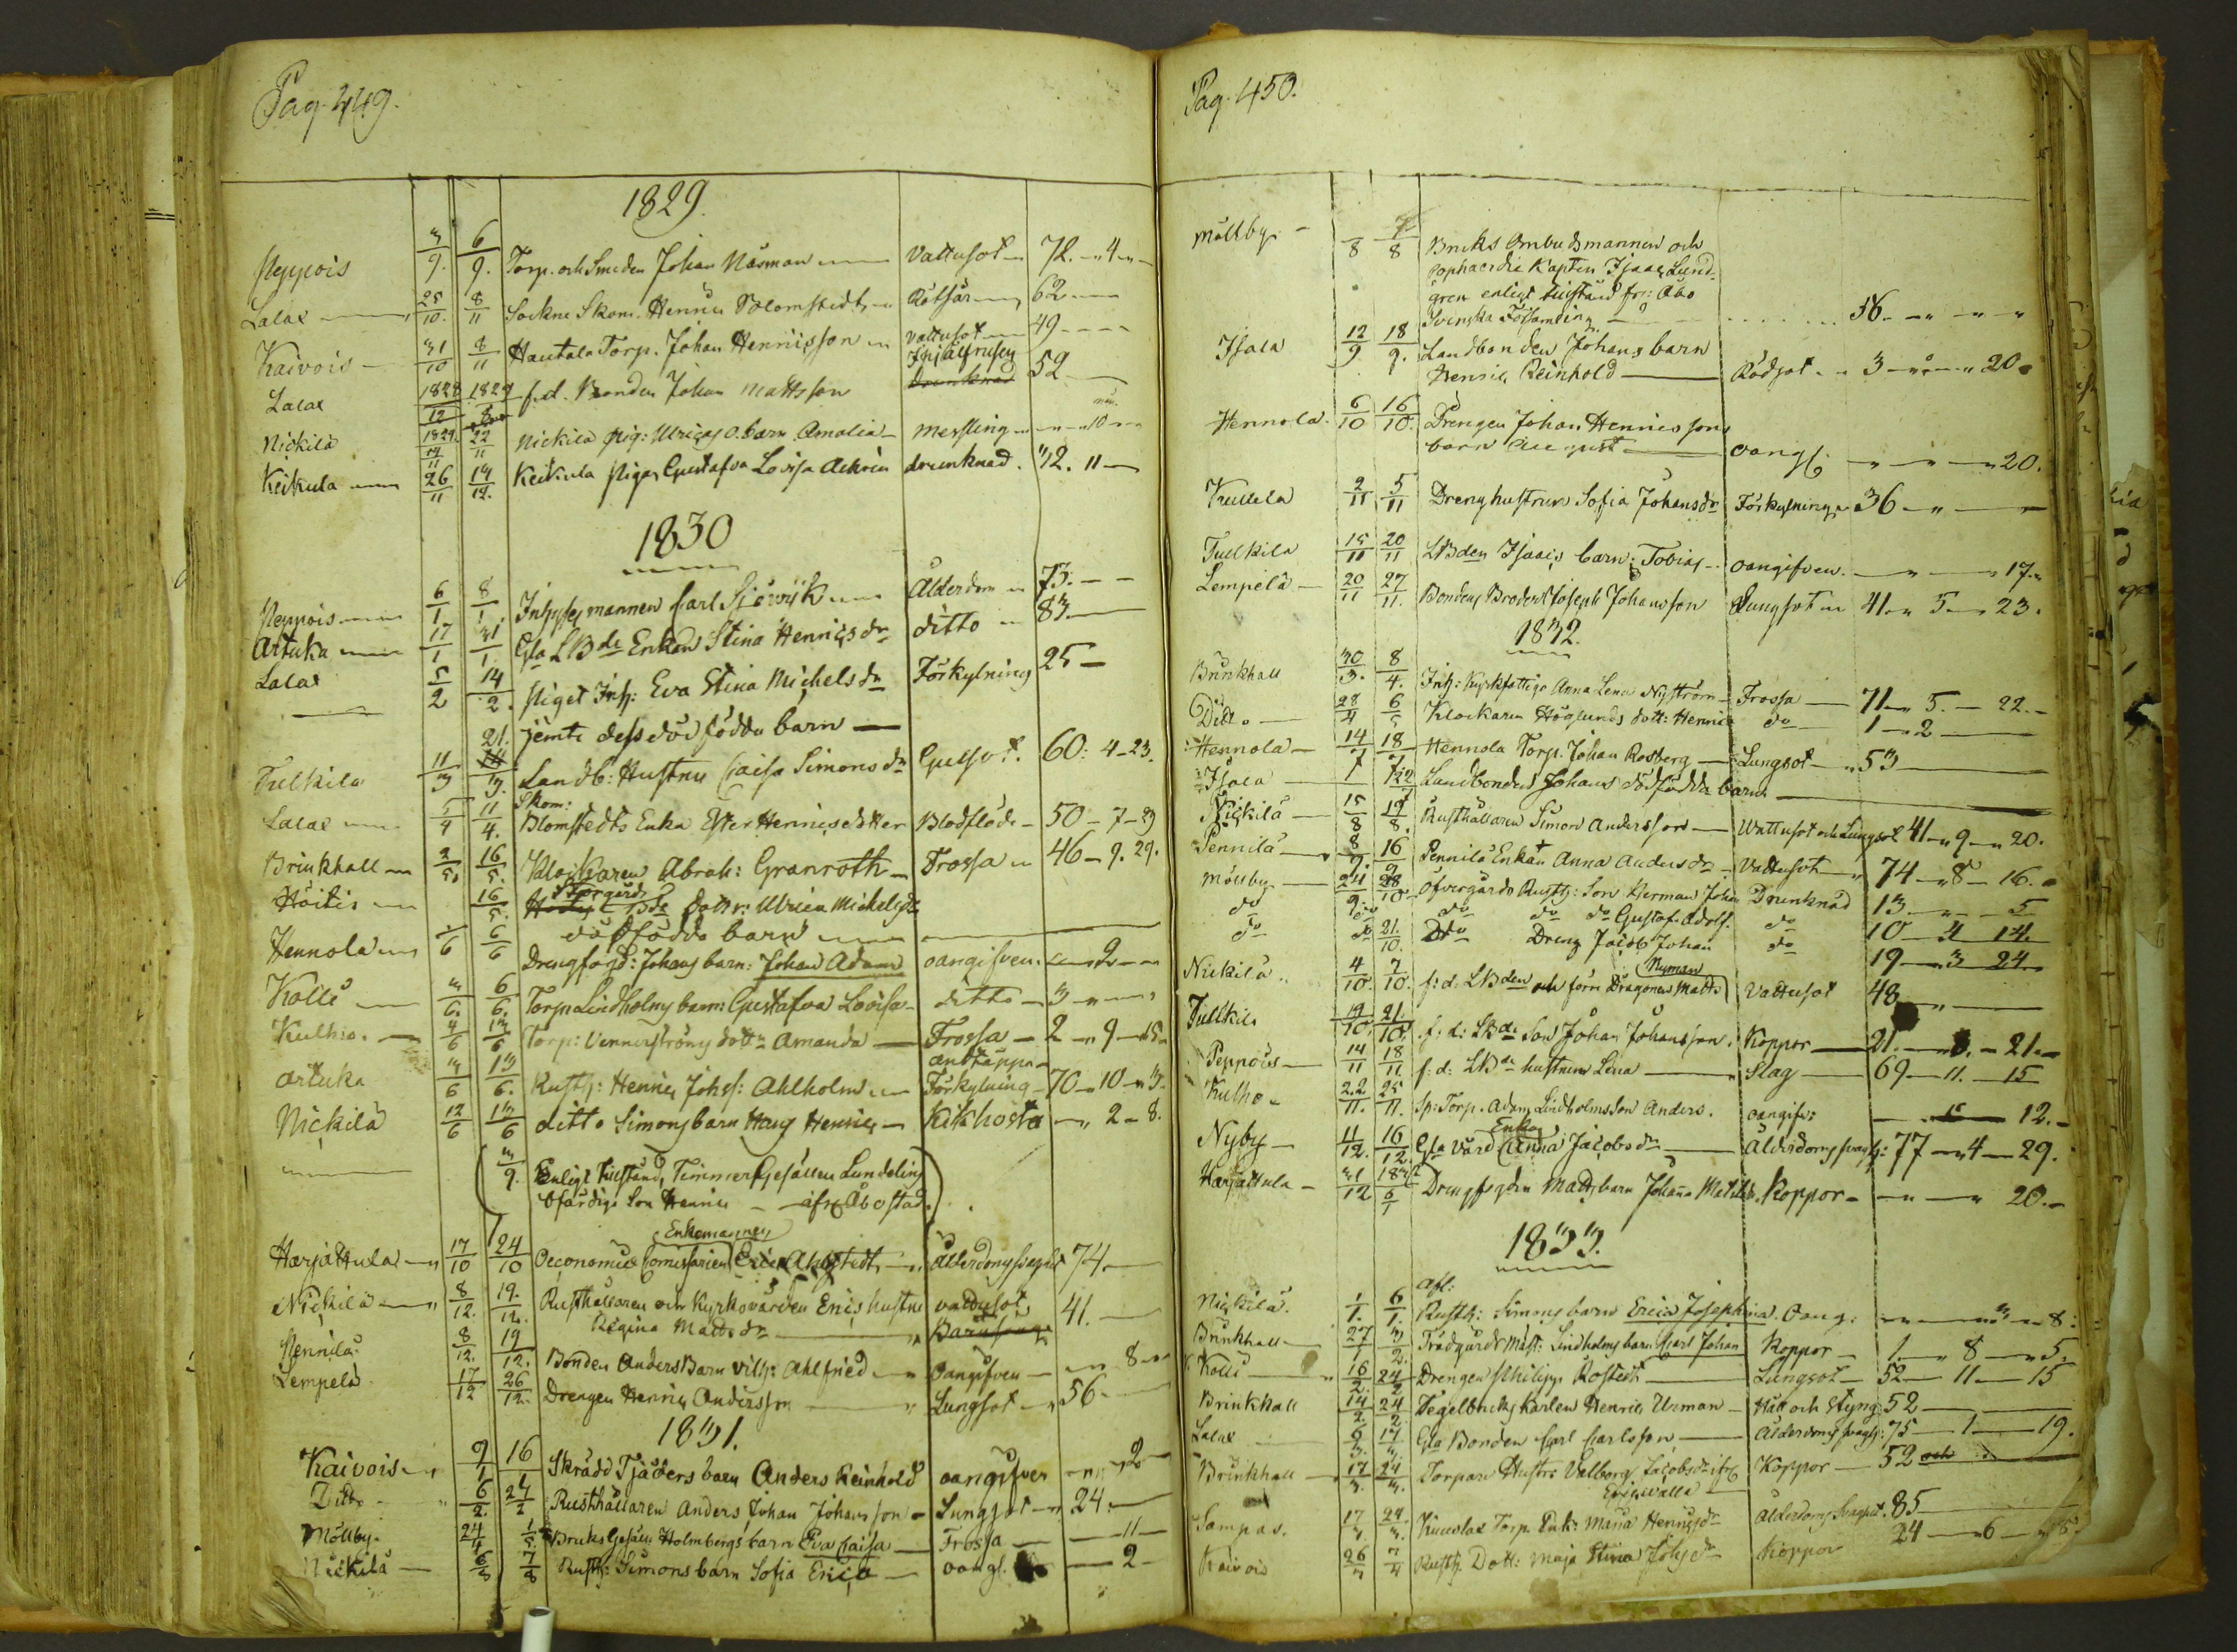 Pag. 449.
1829.
Peppois 3/9. 6/9. Torp. och Smeden Johan Näsman Vattusot 72. 4
Lalax 25/10. 8/11 Sockne Skom. Henric Blomstedt Rötsår 62
Kaivois 31/10 8/11 Hautala Torp. Johan Henricsson Vattusot 49
Lalax 1828 /12 1829 f.d. Bonden Johan Mattsson Ihjälfrusen drunknad 52
Nickilä 1829. 22/11 Nickilä Pig: Ulricas o. barn Amalia messling 10
Keikula 26/11 14/12. Keikula Pigan Gustafva Lovisa drunknad. 12. 11
1830
Peppois 6/1 8/1. Inhysesmannen Carl Siöwijk Ålderdom 73.
Artuka 17/1 31/1. Gla LBde Enkan Stina Henricsdr ditto 83.
Lalax 5/2 14/2. Piget Inh: Eva Stina Michelsdr Förkylning 25
jemte dess dödfödda barn
Tulkila 11/3 21./3. Landb: Hustru Caisa Simonsdr Gulsot. 60: 4-23.
Skom:
Lalax 5/4 11/4. Blomstedts Enka Ester Henricsdotter Blodflöde 50-7-29
Brinkhall 2/5. 16/5. Klockaren Abrah: Granroth Frossa 46-9.29.
Höitis 16/5. Dotter: Ulrica Michelsdr
dödfödda barn
Hennola 1/6 6/6 Drengfogd: Johans barn: Johan Adam oangifven. 2
Kolli 3/6. 6/6. Torp. Lindholms barn: Gustafva Lovisa ditto 3
Kulho. 4/6 13/6 Torp: Vennerströms dottr Amanda Frossa 2 9 15
Artuka 3/6 13/6. Rusth: Henric Johss: Ahlholm Förkylning 70 10 3.
Nickilä 12/6 13/6 ditto Simons barn Henric Kikhosta 2-8.
3/9. Enligt tillstånd, Timmer Gesällen Lundelins
ofärdige Son Henric afr. Åbo stad.
Enkemannen
Harjattula 17/10 24/10 Oeconomie Comissarien Eric Ahlstedt Ålderdomssvaghet 74.
Nickilä 8/12. 19./12. Rusthållaren och Kyrkovärden Erics hustru vattusot 41.
Regina Mattsdr
Pennilä 8/12. 19/12. Bonden Anders Barn Vilh: Ahlfried Oangifven 8
Lempelä 17/12 26/12. Drengen Henric Andersson Lungsot 56.
1831.
Kaivois 9/1 16/1 Skrädd Tjäders barn Anders Reinhold oangifven 2
Ditto 6/2. 27/2 Rusthållaren Anders Johan Johansson Lungsot 24.
Mollby. 24/4 1/5. Bruks Gesäll Holmbergs barn Eva Caisa Frossa 11
Nickilä 7/8 Rusth: Simons barn Sofia Erica oangf. 2
Pag. 450.
Mollby. /8 7/8 Bruks Ombudsmannen och
Cophaerdie Kapten Isaac Lund-
gren enligt tillstånd fr: Åbo
Svenska Församling 56.
Isala 12/9 18/9. Landbonden Johans barn
Henric Reinhold Rödsot 3 20.
Hennola. 6/10 16/10. Drengen Johan Henricssons
barn August oangf. 20.
Kullela 2/11 5/11 Drenghustrun Sofia Johansdr Förkylning 36
Tulkila 15/11 20/11 LBden Isaacs barn: Tobias oangifven. 17.
Lempelä 20/11 27/11. Bondens Broder Joseph Johansson Lungsot 41 5 23.
1832.
Brinkhall 30/3. 8/4. Inh: Kyrkfattiga Anna Lena Nyström Frossa 71 5. 22.
Ditto 28/4 6/5 Klockaren Höglunds dott: Henrica do 1 2
Hennola 14/7 18/7 Hennola Torp. Johan Rosberg Lungsot 53
Isala Landbonden Johans dödfödda barn
Nickilä 15/8 19/8. Rusthållaren Simon Andersson Wattusot och Lungsot 41 9 20.
Pennilä 8/9. 16/9 Pennilä Enkan Anna Andersdr Vattusot 74 8 16.
Mollby 24/9. 28/10 Öfvergårds Rusth: Son Herman Johan Drunknad 13 5
do do do do do Gustaf Adolf. do 10 4 14.
do do 21./10. Ddo Dreng Jacob Johan do 19 3 24
Nyman
Nickilä. 4/10. 7/10. f:d. LBden och förre Dragonen Matts Vattusot 48
Tullkila 19/10. 21./10. f:d: LBde Son Johan Johansson. Koppor 21. 21.
Peppois 14/11 18/11 f:d: LBde hustrun Lena Slag 69 11. 15
Kulho 22/11. 25/11. Sp: Torp. Adam Lindholms Son Anders. oangifv: 12.
Enkan
Nyby 4/12. 16/12. Gla Värd Anna Jacobsdr Ålderdomssvagh: 77 4 29.
Harjattula 31/12 1833 6/1 Drengfogden Matts barn Johanna Matilda. Koppor 20.
1833.
afl:
Nickilä. 1/1. 6/1. Rusth: Simons barn Erica Josephina. Oang. 8.
Brinkhall 27/1 3/2. Trädgårds Mäst: Lindholms barn Carl Johan Koppor 1 8 5.
Kolli 16/2. 24/2 Drengen Philipp Rostedt Lungsot 52 11 15
Brinkhall 14/2 24/2 Tegelbruks Karlen Henric Urman Håll och Styng 52
Lalax 17/3 Gla Bonden Carl Carlsson Ålderdomssvagh: 75 1 19.
Brinkhall 17/3. 24/3. Torpare Hustru Valborg Jacobsdr Koppor 52
Sampas. 17/3. 24./3. Torp. Enk: Maria Henricsdr Ålderdoms Svaghet. 85
Kaivois 26/3 7/4 Rusth. Dott: Maja Stina Johsdr Koppor 24 6